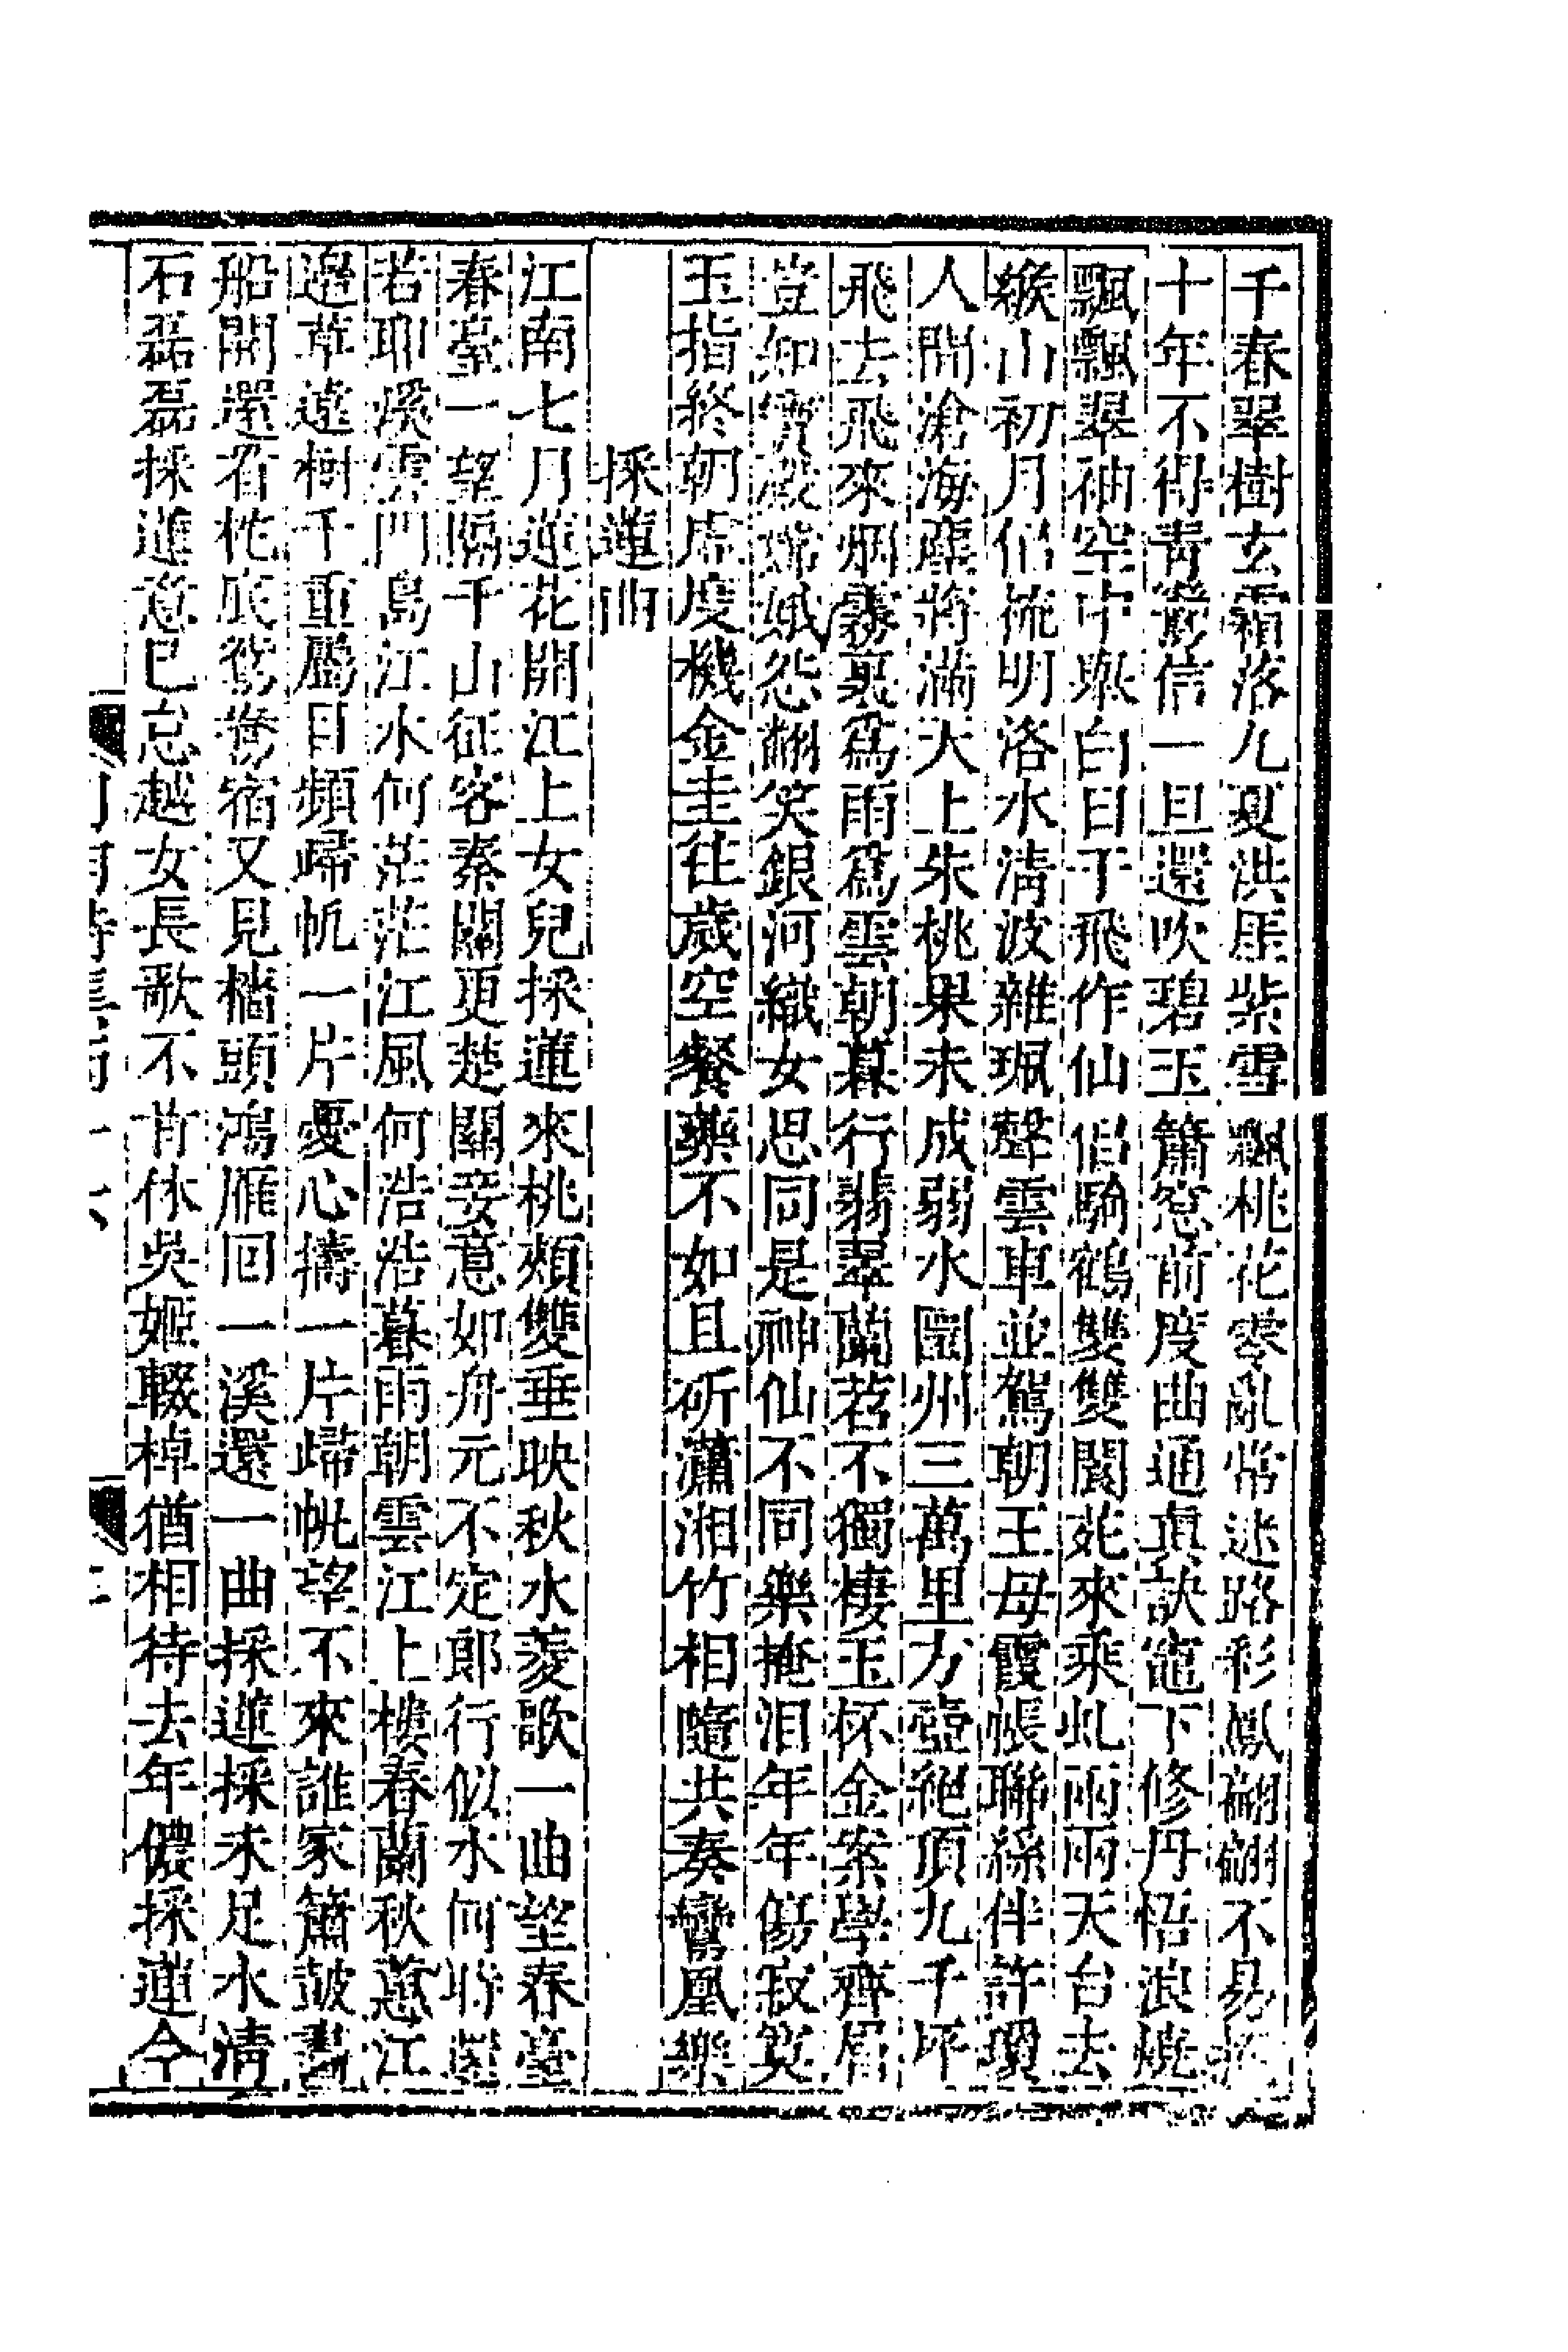 千春翠樹玄霜落九夏洪厓紫雪飄桃花零亂常迷路彩鳳翩翩不易
十年不得青鸞信一旦還吹碧玉簫窓前度曲通真訣竈下修丹悟浪燒
飄飄翠袖空中舉白日于飛作仙侶驂鶴雙雙閬苑來乘虬兩兩天台去
緱山初月侶徳明洛水清波雜珮聲雲車並駕朝王母霞帳聯絲伴許瓊
人間滄海塵將滿天上朱桃果未成弱水圍州三萬里方壺絕頂九千坪
飛去飛來烟霧裏爲雨爲雲朝暮行翡翠蘭苕不獨棲玉杯金案學齊眉
豈知寶殿嫦娥怨翻笑銀河織女思同是神仙不同樂掩泪年年傷寂寞
玉指終朝虛度機金圭往歲空餐藥不如且斫瀟湘竹相隨共奏鸞凰樂
採蓮曲
江南七月蓮花開江上女兒採蓮來桃頰雙垂映秋水菱歌一曲望春臺
春臺一望隔千山征客秦關更楚關妾意如舟元不定郎行似水何時還
若耶溪雲門島江水何茫茫江風何浩浩暮雨朝雲江上樓春蘭秋蕙江
邊草遠樹千重屬目頻歸帆一片憂心擣一片歸帆望不來誰家簫鼓畫
船開還看柁底鴛鴦宿又見檣頭鴻雁回一溪還一曲採蓮採未足水清
石磊磊採蓮意已怠越女長歌不肯休吳姬輟棹猶相待去年儂採蓮今